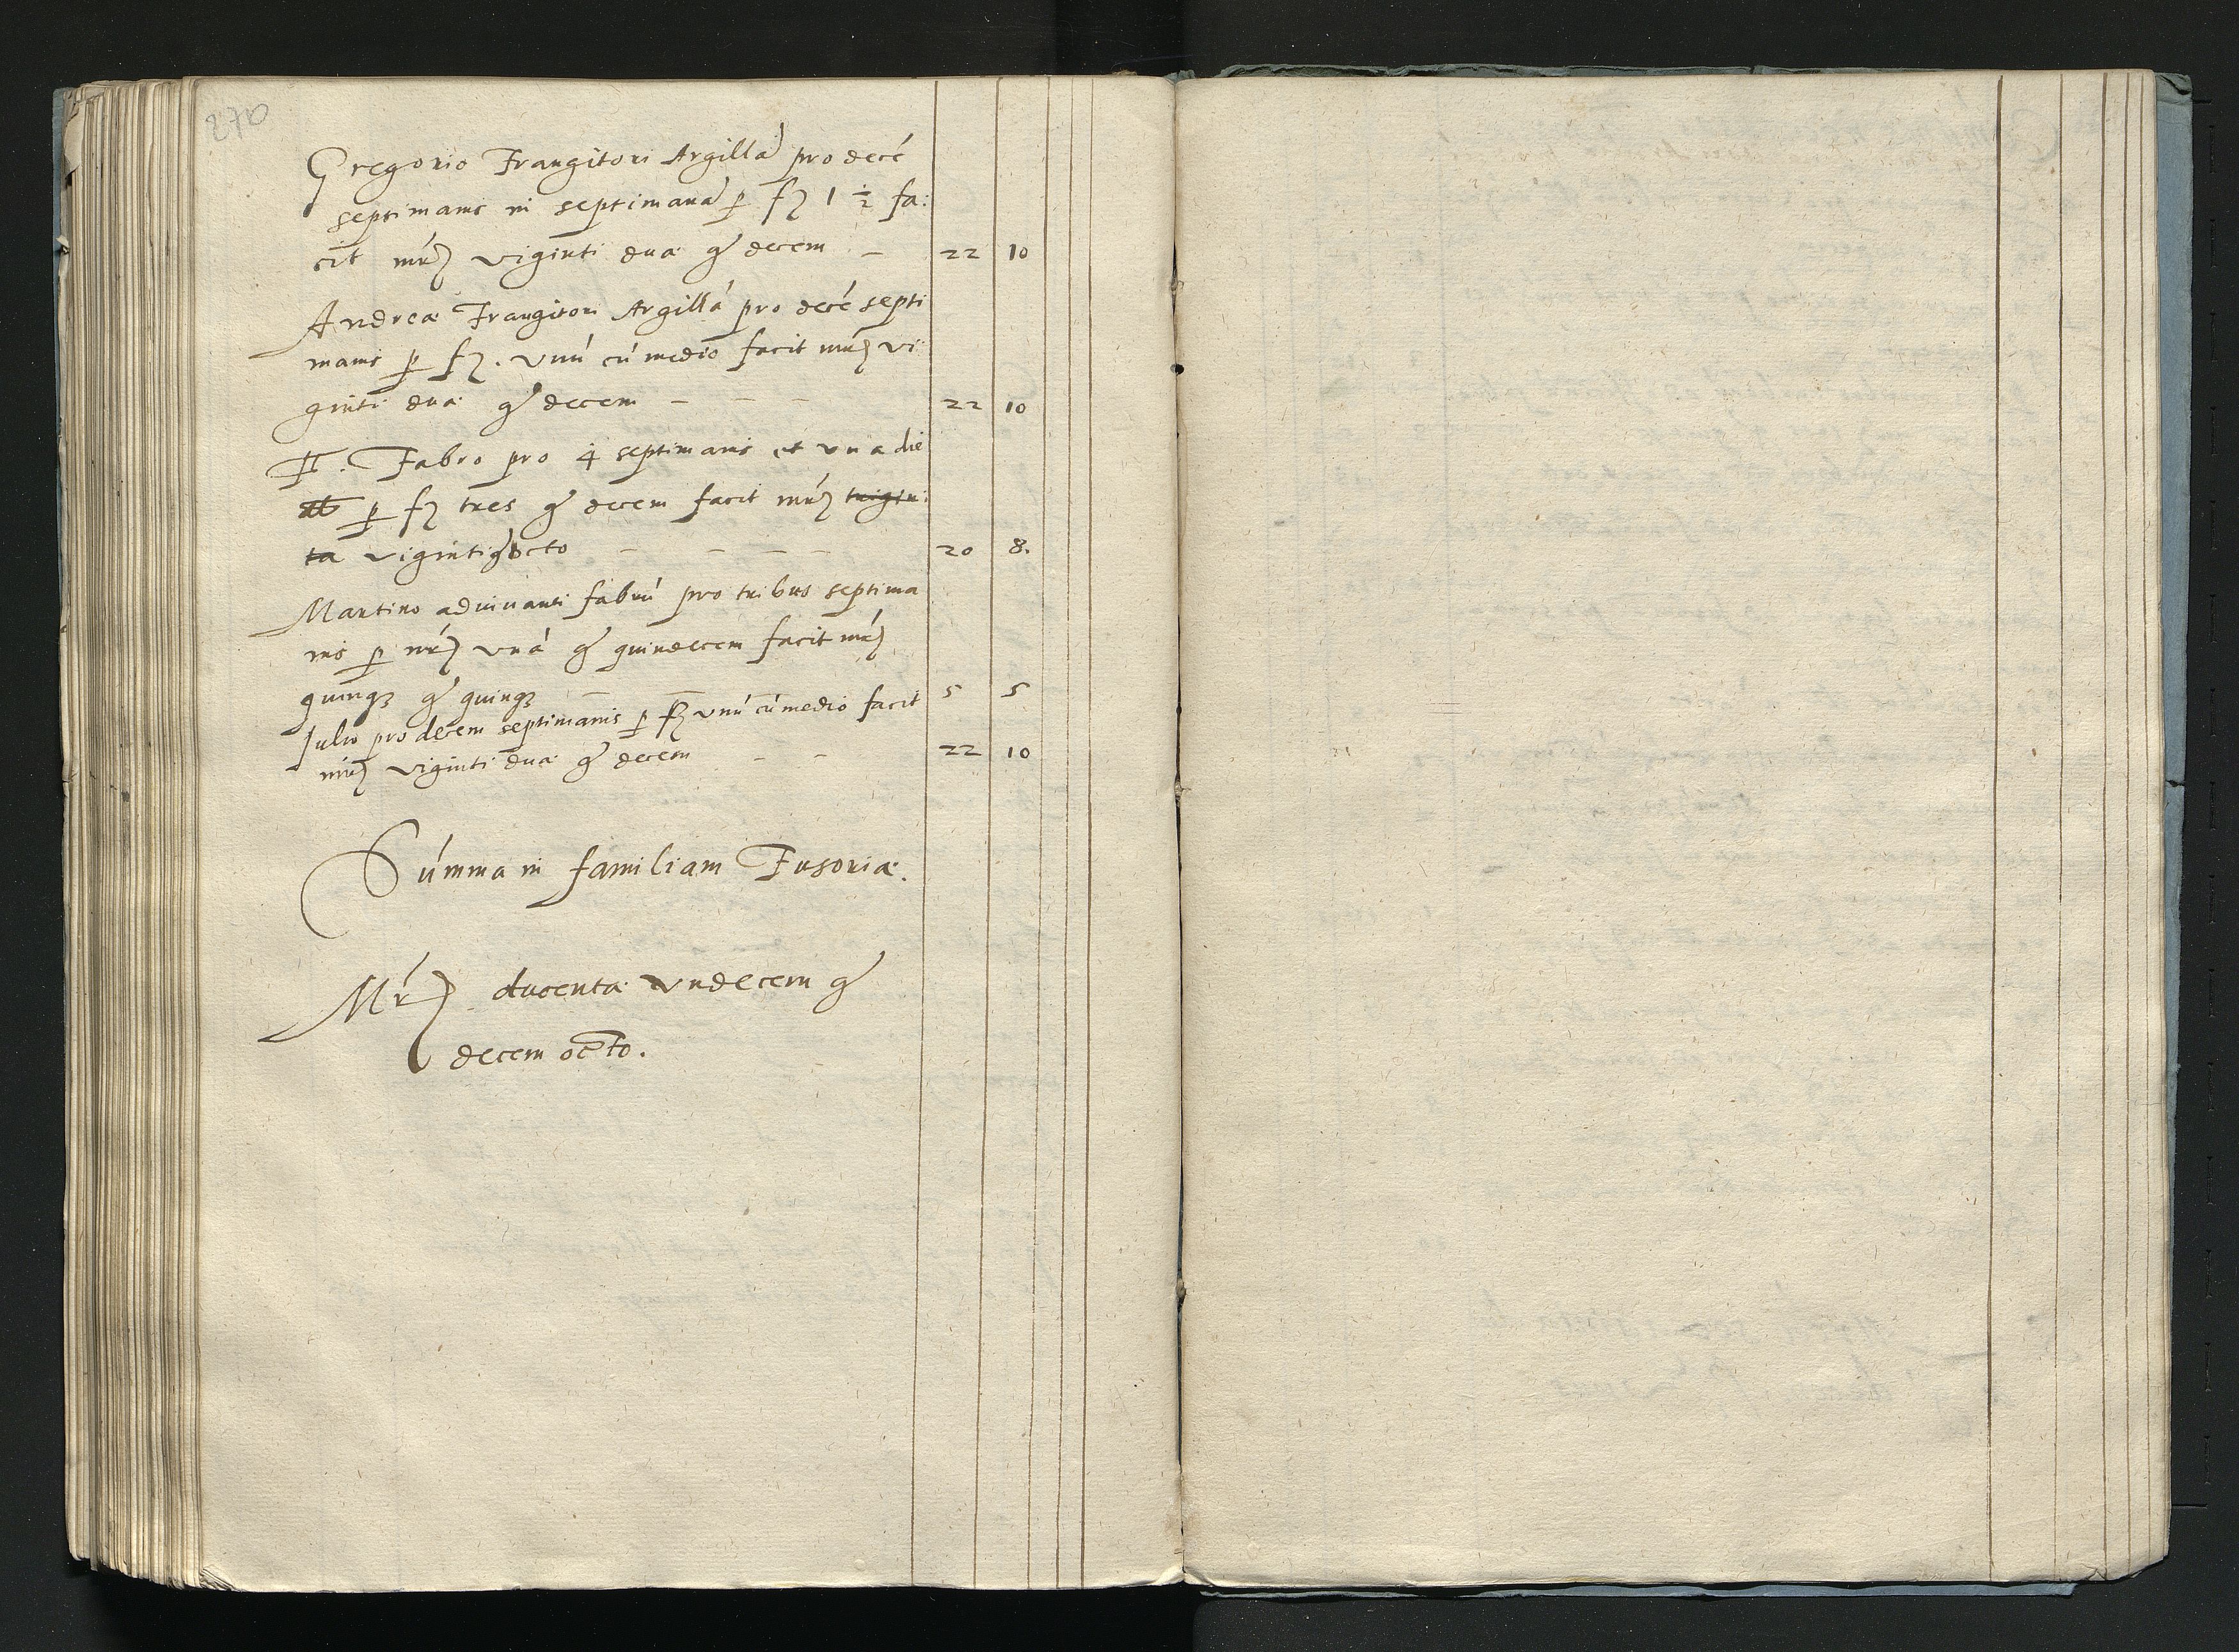 270
Gregorio Frangitori Argillā pro decē
septimanis in septimanā ꝑ fl 1 ½ fa:
cit mrc viginti duæ gͬ decem — 22 10
Andreæ Frangitori Argillā pro decē septi
manis ꝑ fl. unū cū medio facit mrc vi:
ginti duæ gͬ decem — — — 22 10
Fabro pro 4 septimanis et una die
ꝑ fl tres gͬ decem facit mrc trigin:
ta viginti gͬ octo — — — — 20 8.
Martino adiuvanti fabrū pro tribus septima
nis ꝑ mrc unā gͬ quindecem facit mrc
quinqꝫ gͬ quinqꝫ — — 5 5
Julio pro decem septimanis ꝑ fl unū cū medio facit
mrc viginti duæ gͬ decem — — 22 10
Summa in familiam Fusoriæ.
Mrc ducenta undecem gͬ
decem octo.